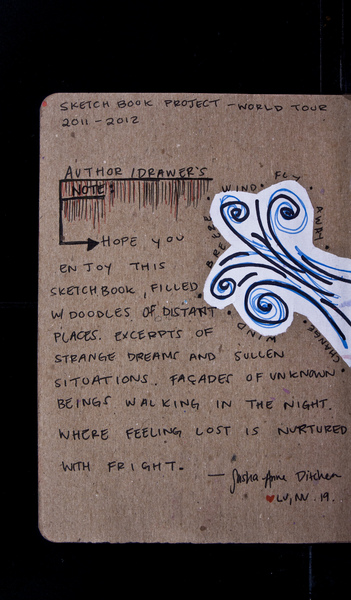 SKETCH BOOK PROJECT - WORLD TOUR
2011 - 2012
AUTHOR / DRAWER'S
NOTE:
HOPE YOU
ENJOY THIS
SKETCHBOOK, FILLED
W/ DOODLES OF DISTANT
PLACES. EXCERPTS OF
STRANGE DREAMS AND SULLEN
SITUATIONS. FAÇADES OF UNKNOWN
BEINGS WALKING IN THE NIGHT.
WHERE FEELING LOST IS NURTURED
WITH FRIGHT.
LV, NV. 19.
BREEZE • WIND • FLY • AWAY •
CHANGE • WIND